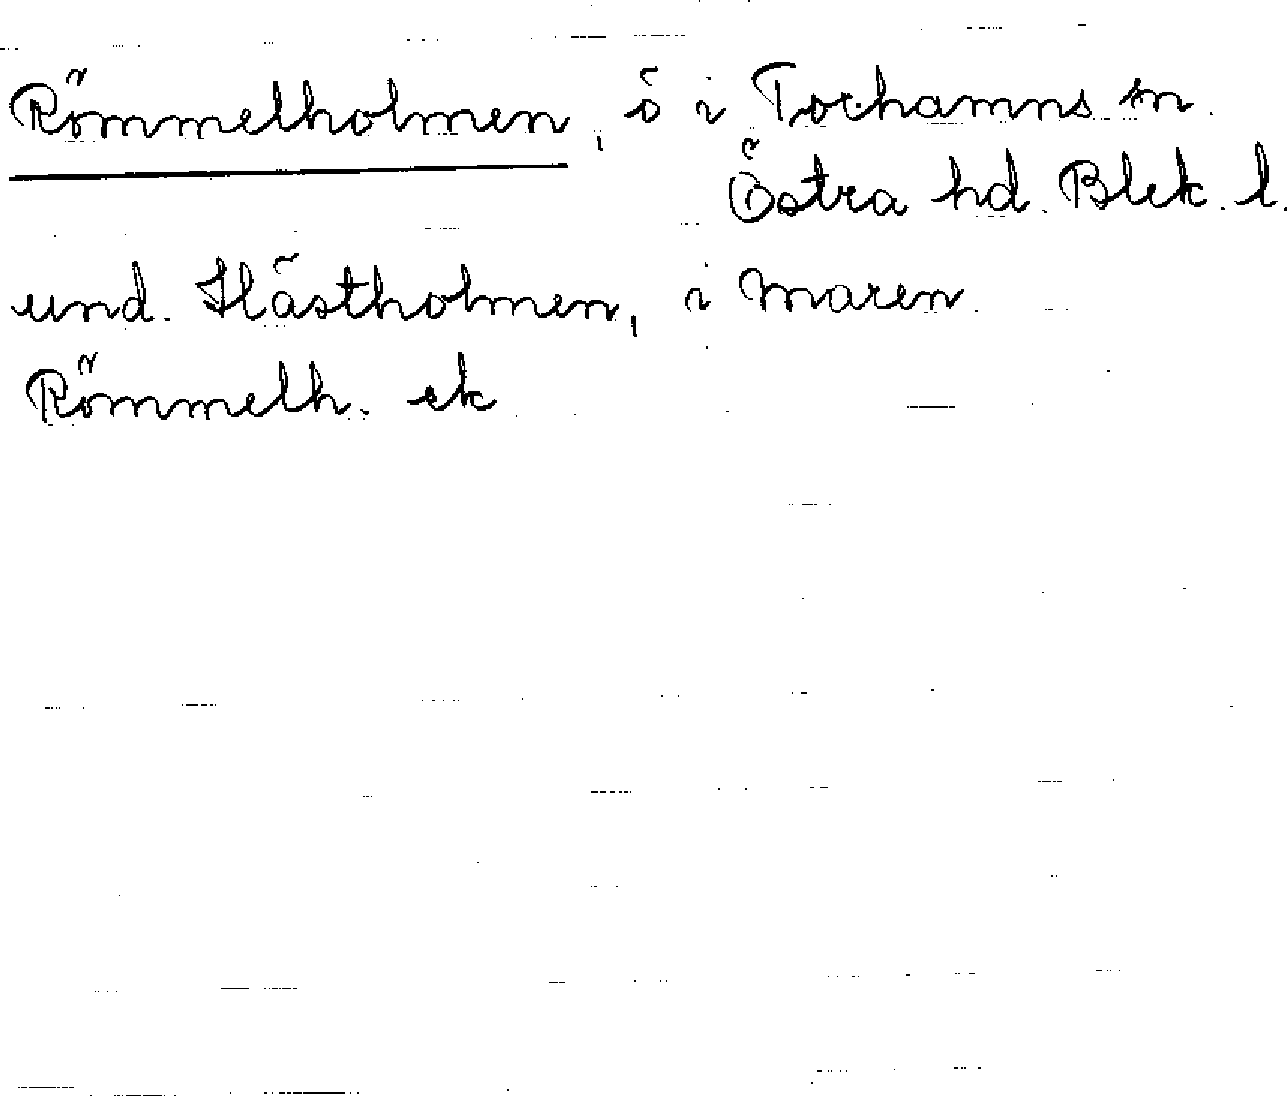 Römmelholmen, ö i Torhamns sn.
Östra hd. Blek. l.
und. Hästholmen, i Maren.
Römmelh. ek